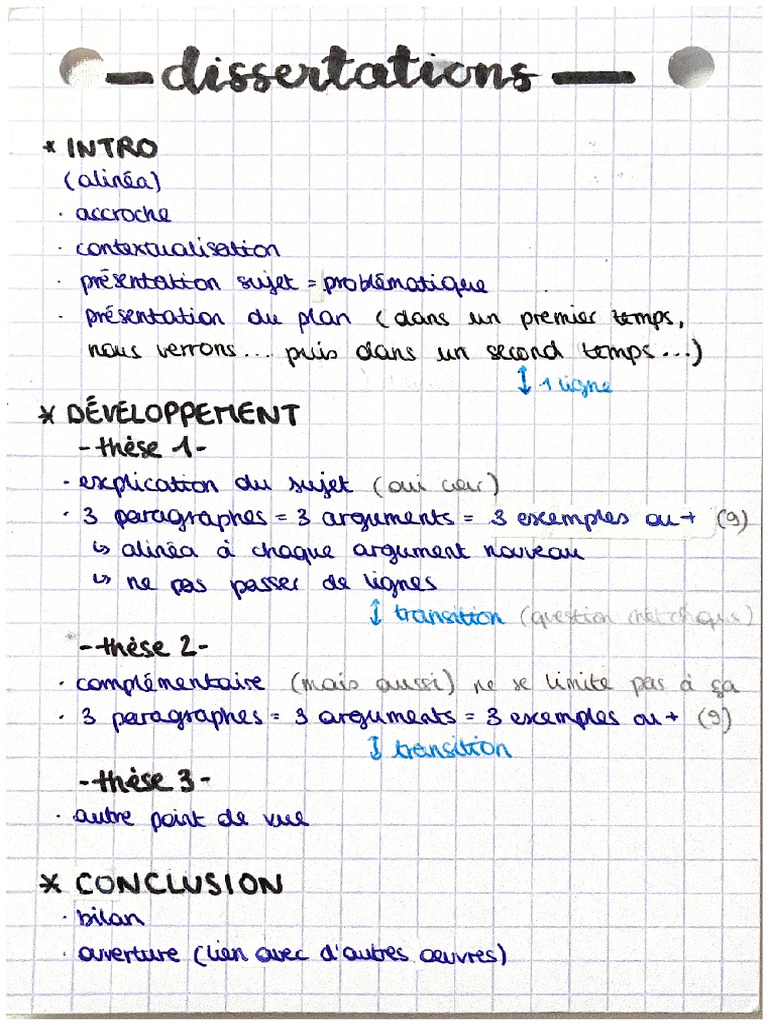 — dissertations —
* INTRO
(alinéa)
· accroche
· contextualisation
· présentation sujet = problématique
· présentation du plan (dans un premier temps,
nous verrons... puis dans un second temps...)
↕ 1 ligne
* DÉVELOPPEMENT
- thèse 1 -
· explication du sujet (oui car)
· 3 paragraphes = 3 arguments = 3 exemples ou + (9)
↳ alinéa à chaque argument nouveau
↳ ne pas passer de lignes
↕ transition (question
- thèse 2 -
· complémentaire (mais aussi) ne se limite pas à ça
· 3 paragraphes = 3 arguments = 3 exemples ou + (9)
↕ transition
- thèse 3 -
· autre point de vue
* CONCLUSION
· bilan
· ouverture (lien avec d'autres œuvres)